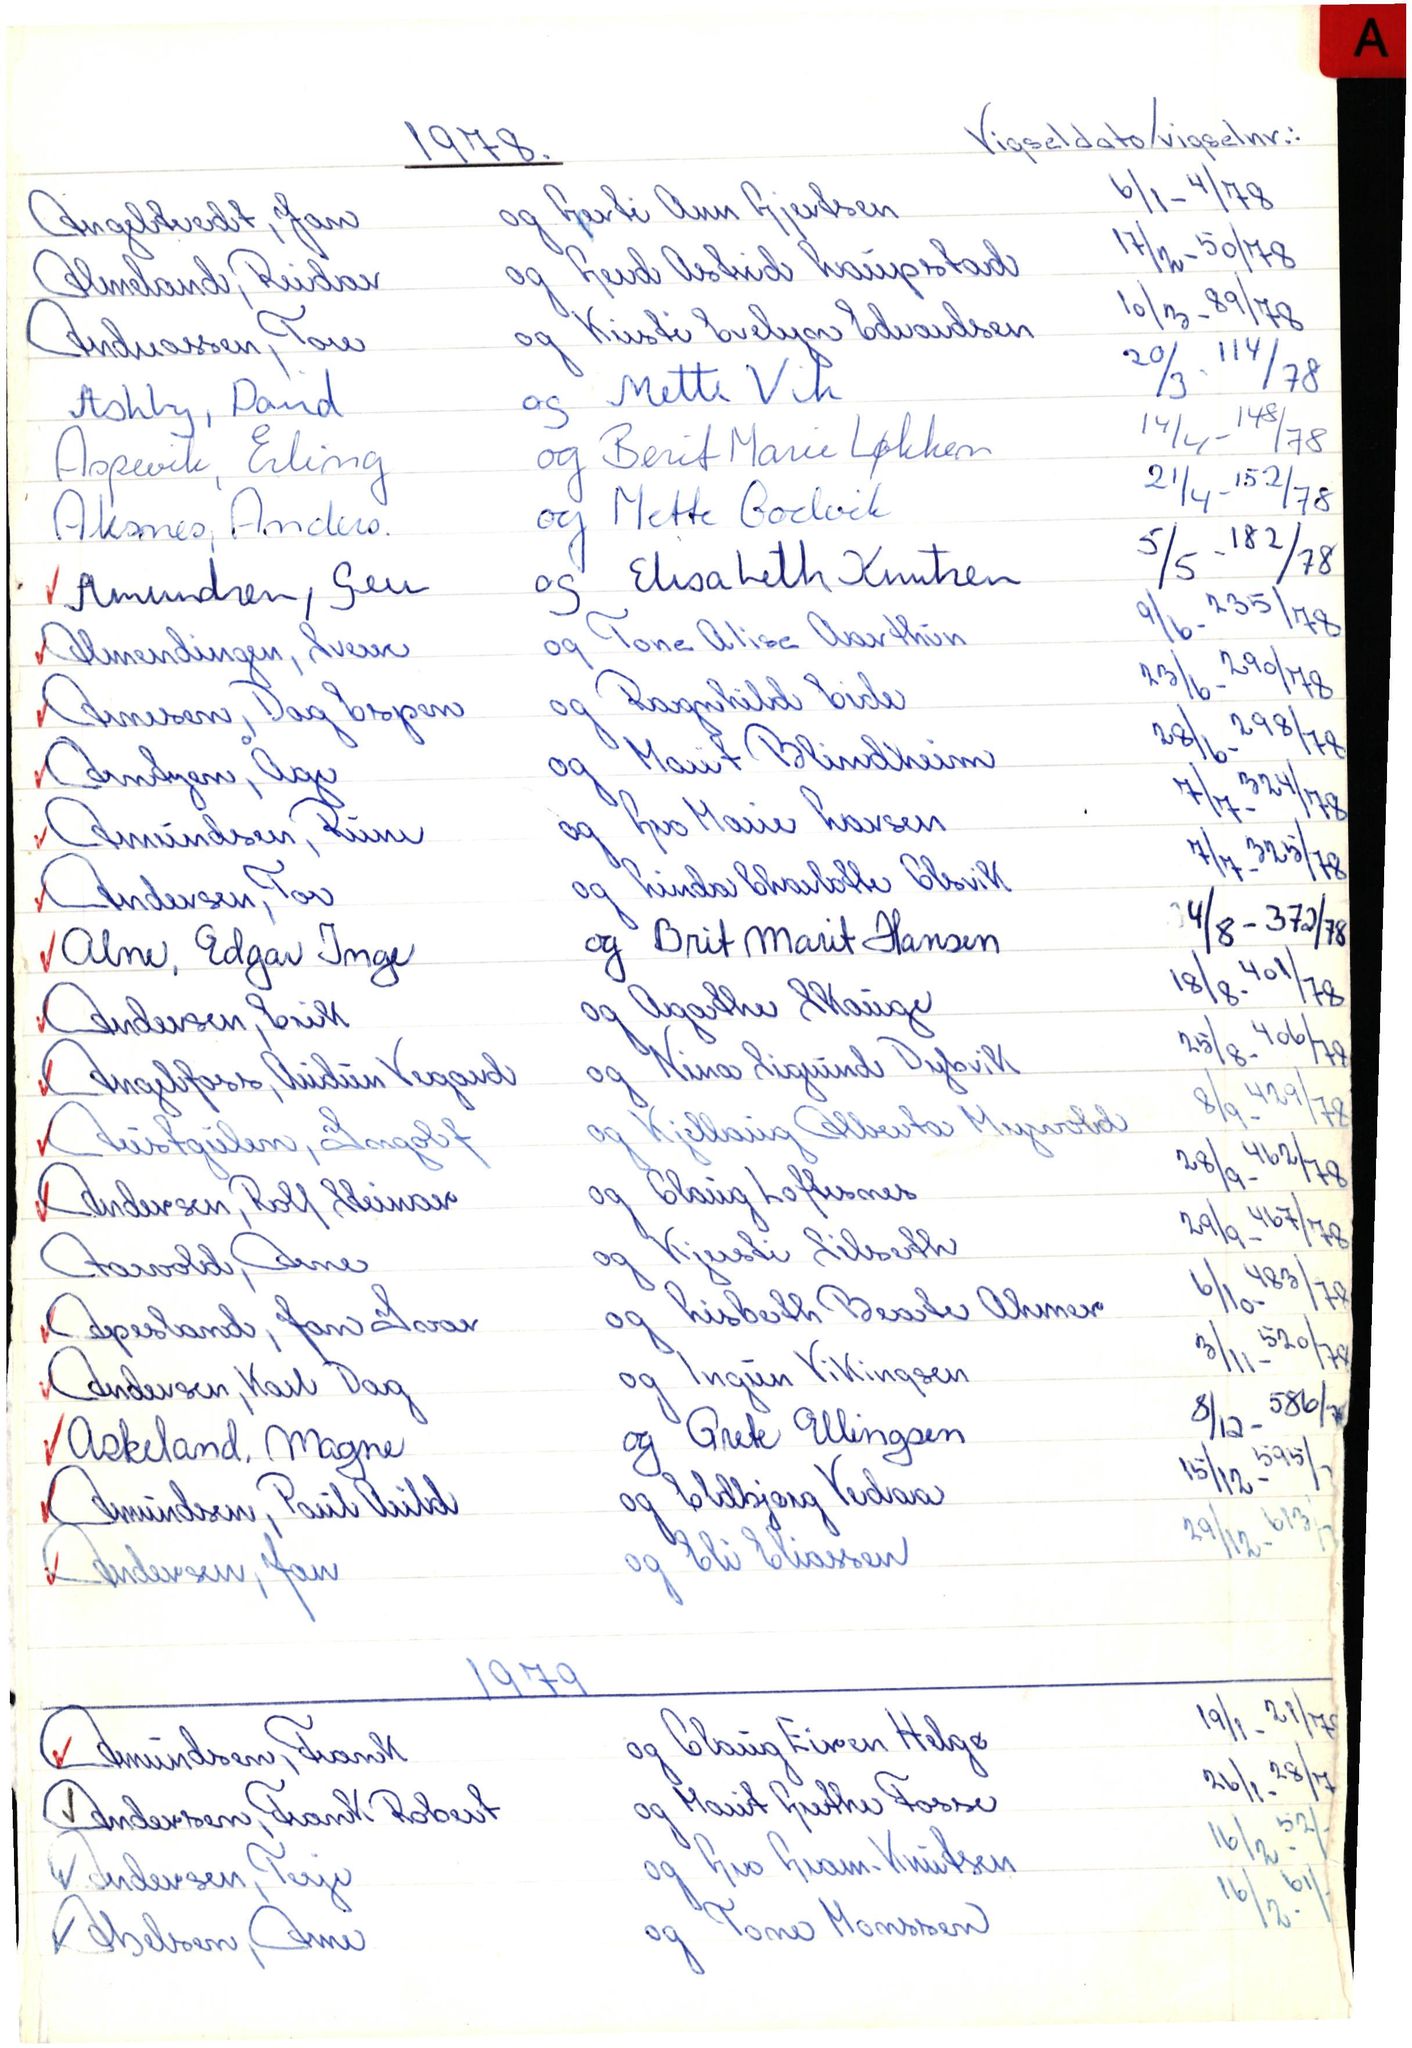 A
1978.
Vigseldato/vigselnr.:
Angeltvedt, Jan og Gerti Ann Gjertsen 6/1 - 4/78
Almeland, Reidar og Gerd Astrid Laupstad 17/2 - 50/78
Andreassen, Tore og Kirsti Evelyn Edvardsen 10/3 - 89/78
Ashby, David og Mette Vik 20/3 - 114/78
Aspevik, Erling og Berit Marie Løkken 14/4 - 148/78
Aksnes, Anders. og Mette Godvik 21/4 - 152/78
Amundsen, Geir og Elisabeth Knutsen 5/5 - 182/78
Almendingen, Sverre og Tone Alise Aarthun 9/6 - 235/78
Arnesen, Dag Espen og Ragnhild Eide 23/6 - 290/78
Arntzen, Åge og Marit Blindheim 28/6 - 298/78
Amundsen, Rune og Gro Marie Larsen 7/7 - 324/78
Andersen, Tor og Linda Charlotte Elsvik 7/7 - 325/78
Alne, Edgar Inge og Brit Marit Hansen 4/8 - 372/78
Andersen, Erik og Agathe Skauge 18/8 - 401/78
Angelfoss, Audun Vegard og Nina Sigrund Dybvik 25/8 - 406/78
Austgulen, Ingolf og Kjellaug Alberta Myrvold 8/9 - 429/78
Andersen, Rolf Steinar og Olaug Loftesnes 28/9 - 462/78
Aarvold, Arne og Kjersti Lilseth 29/9 - 467/78
Apesland, Jan Ivar og Lisbeth Beate Ahmer 6/10 - 483/78
Andersen, Karl Dag og Ingun Vikingsen 3/11 - 520/78
Askeland, Magne og Grete Ellingsen 8/12 - 586/7
Amundsen, Paul Arild og Eldbjørg Vedraa 15/12 - 595/7
Andersen, Jan og Eli Eliassen 29/12 - 613/7
1979
Amundsen, Frank og Olaug Eiren Helgø 19/1 - 21/79
Anderssen, Frank Robert og Marit Grethe Fosse 26/1 - 28/7
Andersen, Terje og Gro Gram-Knutsen 16/2 - 52/
Akselsen, Arne og Tone Monssen 16/2 - 61/